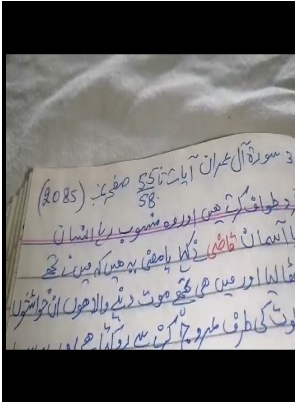 3 سورۃ آل عمران آیات تا 55 58 صفحہ نمبر (2085)
و طواف کرتے ہیں اور وہ منسوب رہا انسان
آسمان قاضی نے کہا یا معنی یہ ہیں کہ میں نے تجھے
لیا اور میں ہی تجھے موت دینے والا ہوں ان خواہشوں
کی طرف عروج کرنے سے روکتا ہے اور